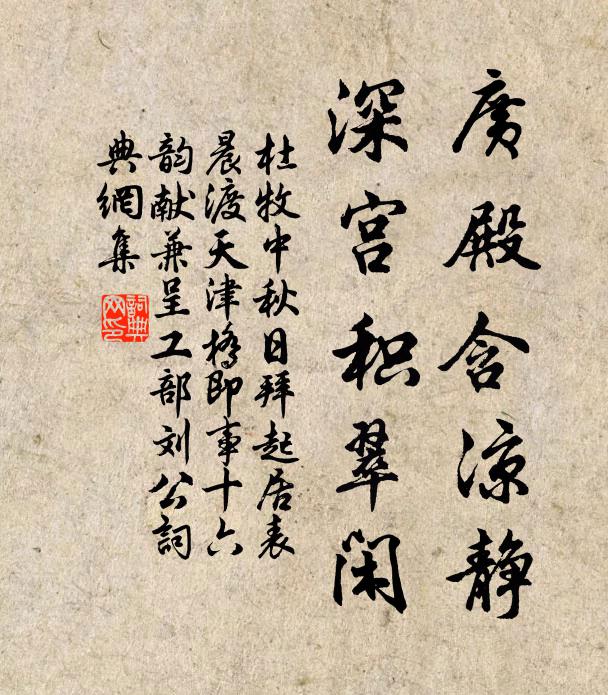 廣殿含凉静
深宫积翠闲
杜牧中秋日拜起居表
晨渡天津橋即事十六
韵献兼呈工部刘公詞
典網集
詞典网印